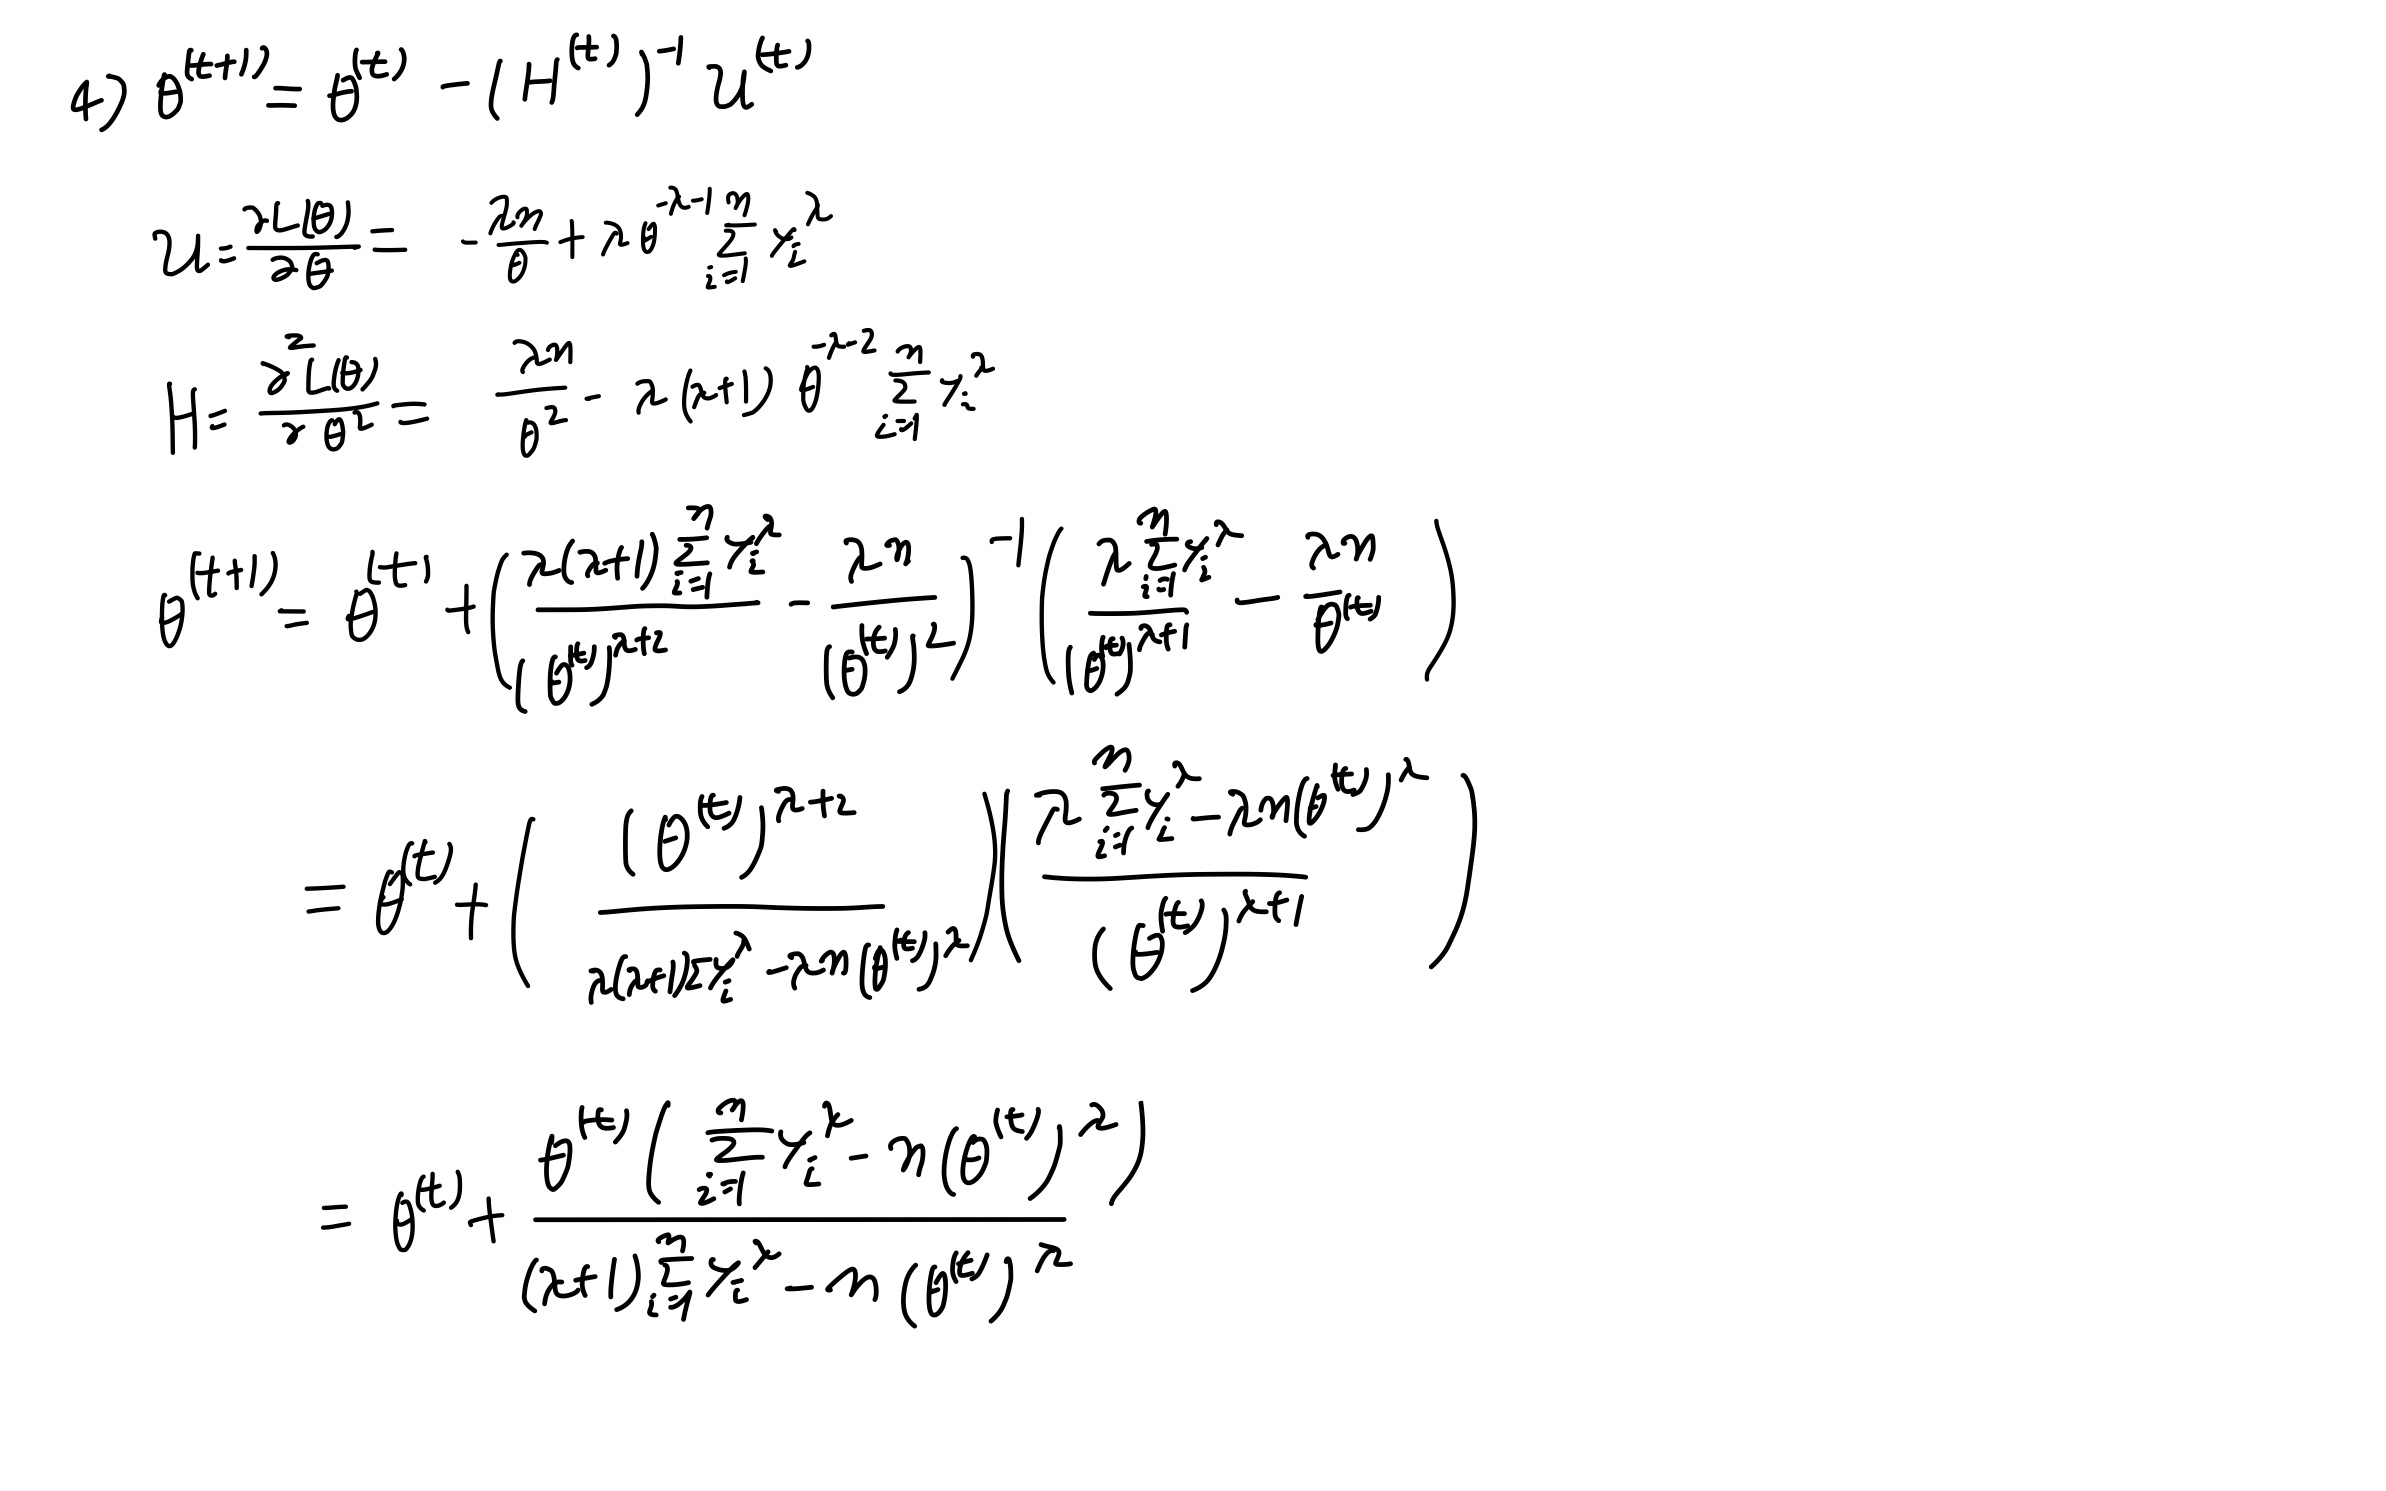 4) θ^(t+1) = θ^(t) - (H^(t))^-1 U^(t)
U = ∂L(θ)/∂θ = -λn/θ + λ θ^(-λ-1) Σ_{i=1}^n y_i^λ
H = ∂²L(θ)/∂θ² = λn/θ² - λ(λ+1) θ^(-λ-2) Σ_{i=1}^n y_i^λ
θ^(t+1) = θ^(t) + ( λ(λ+1) Σ_{i=1}^n y_i^λ / (θ^(t))^(λ+2) - λn / (θ^(t))^2 )^-1 ( λ Σ_{i=1}^n y_i^λ / (θ^(t))^(λ+1) - λn / θ^(t) )
= θ^(t) + ( (θ^(t))^(λ+2) / λ(λ+1) Σ y_i^λ - λn(θ^(t))^λ ) ( λ Σ_{i=1}^n y_i^λ - λn(θ^(t))^λ / (θ^(t))^(λ+1) )
= θ^(t) + θ^(t) ( Σ_{i=1}^n y_i^λ - n(θ^(t))^λ ) / (λ+1) Σ_{i=1}^n y_i^λ - n(θ^(t))^λ